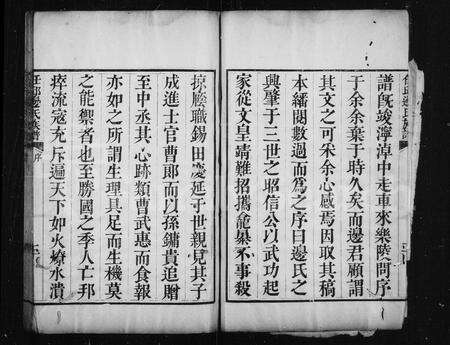 譜旣竣濘淖中走車來樂陵問序
于余余棄于時久矣而邊君顧謂
其文之可釆余心感焉因取其稿
本繙閱數過而爲之序曰邊氏之
興肇于三世之昭信公以武功起
家從文皇靖難招攜龕暴不事殺
掠膺職錫田慶延于世親見其子
成進士官曹郎而以孫鏞貴追贈
至中丞其心跡類曹武惠而食報
亦如之所謂生理具足而生機莫
之能禦者也至勝國之季人亡邦
瘁流寇充斥遍天下如火燎水潰
任邱邊氏族譜
序